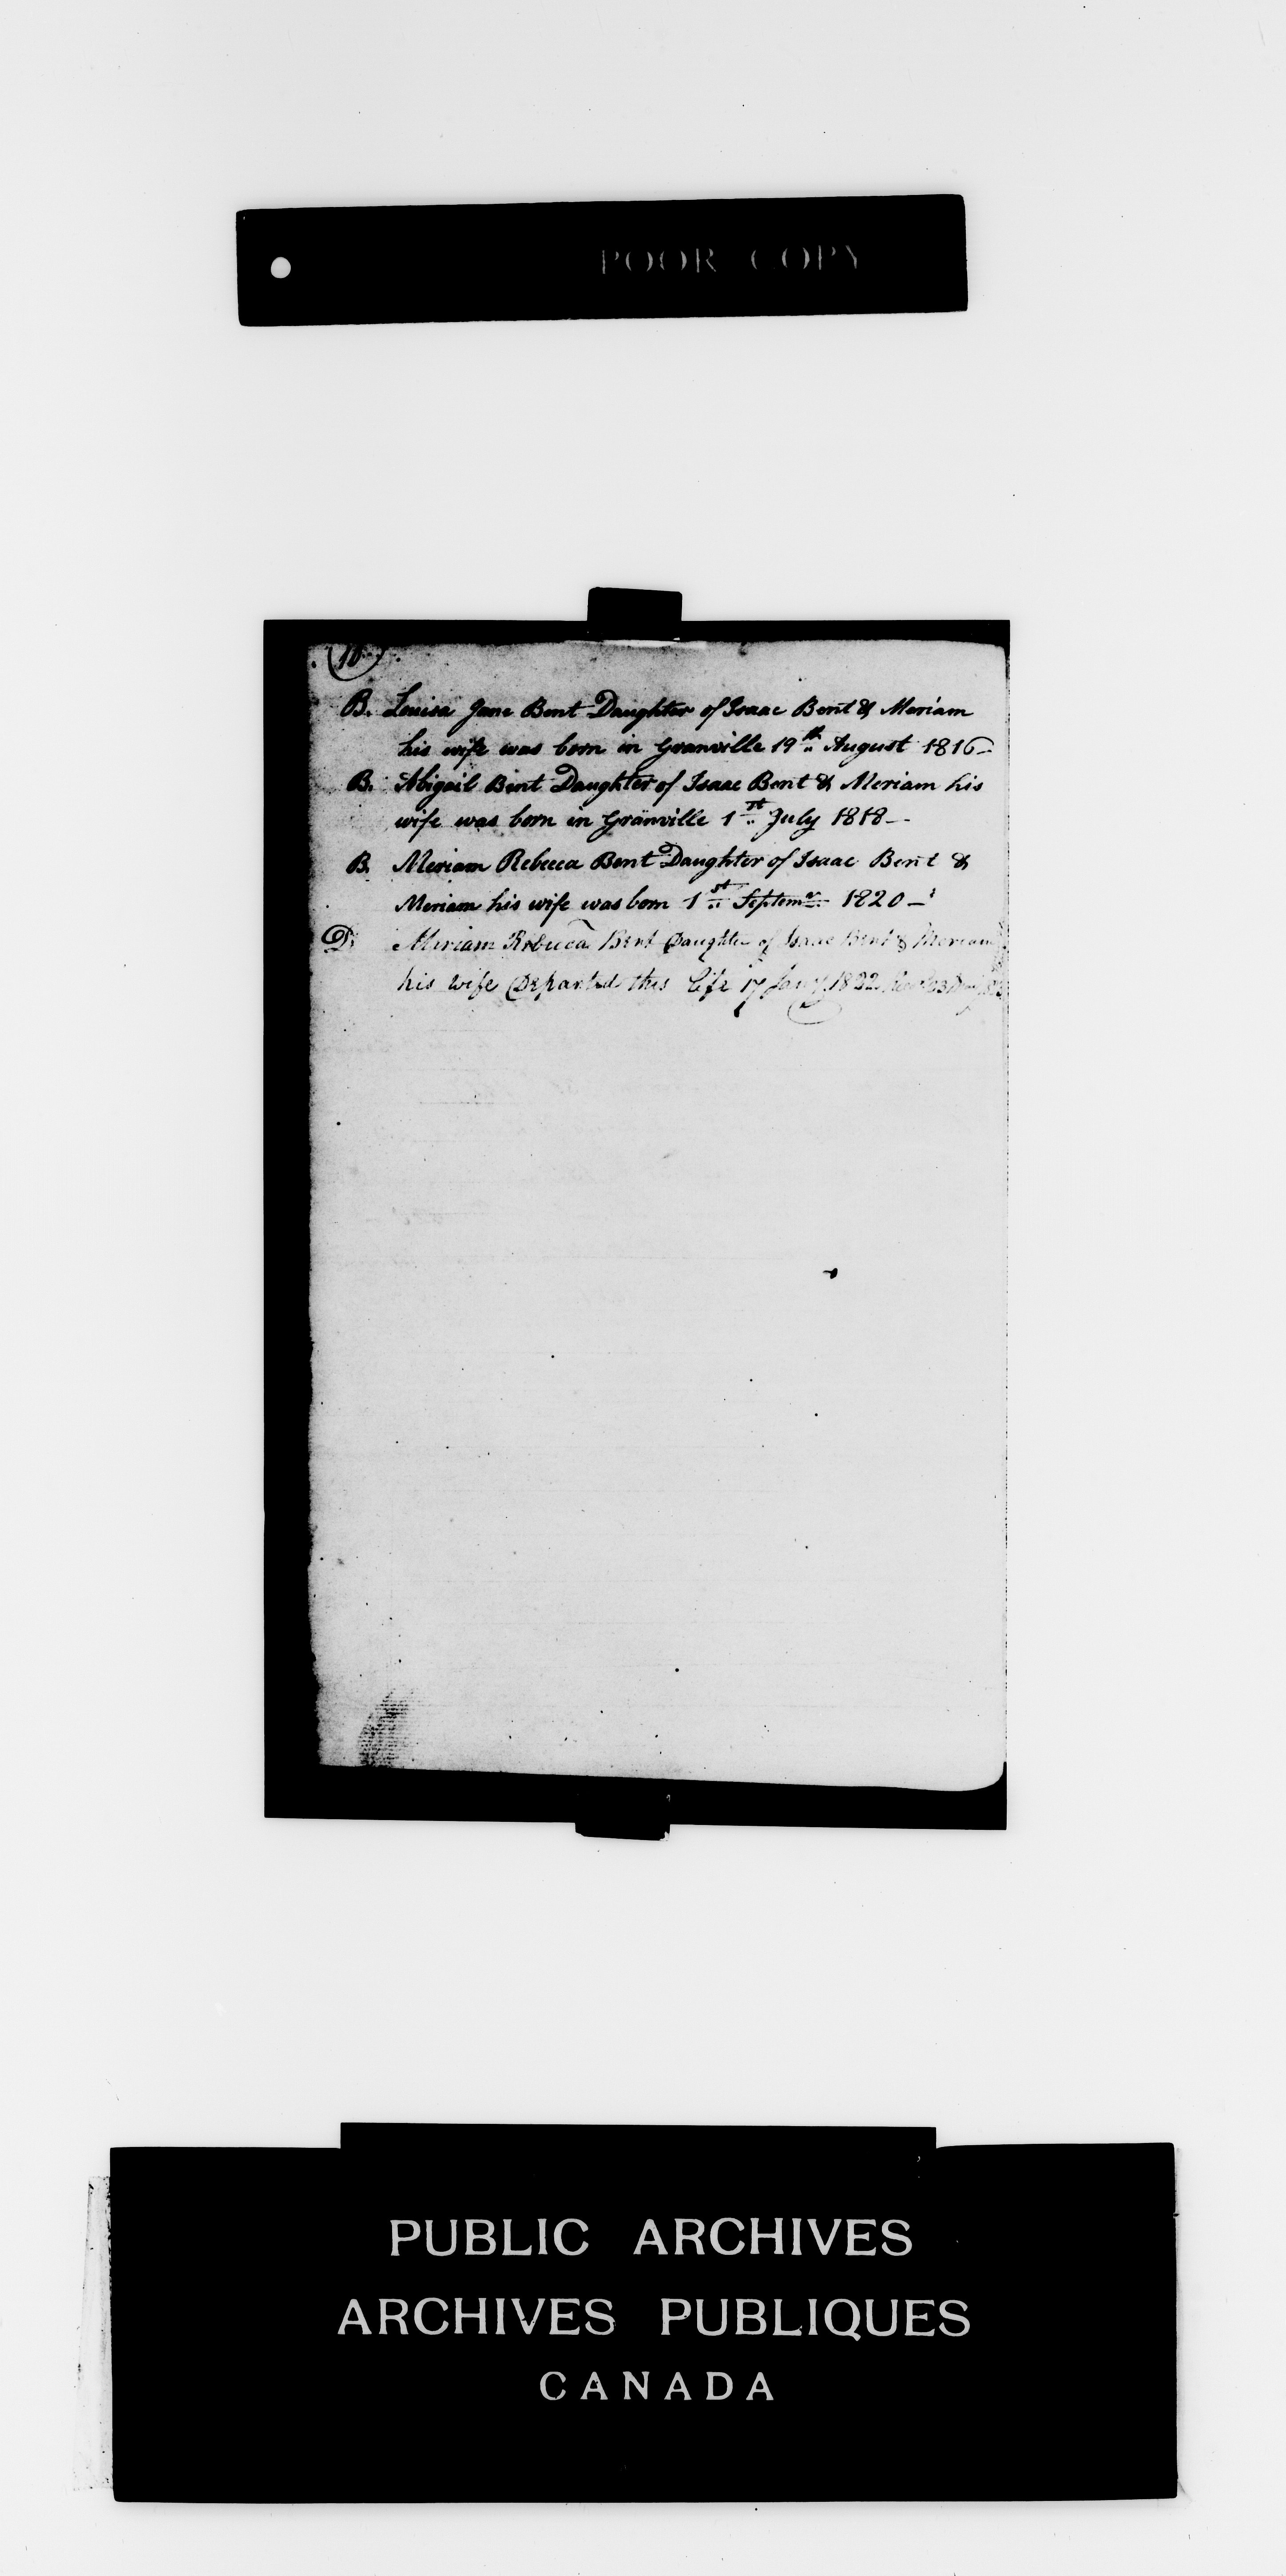 POOR COPY
B. Louisa Jane Bent Daughter of Isaac Bent & Meriam
his wife was born in Granville 19th August 1816 -
B. Abigail Bent Daughter of Isaac Bent & Meriam his
wife was born in Granville 1st July 1818 -
B. Meriam Rebecca Bent Daughter of Isaac Bent &
Meriam his wife was born 1st Septemr 1820 -
D. Miriam Rebecca Bent Daughter of Isaac Bent & Meriam
his wife Departed this life 17 Jany 1822
PUBLIC ARCHIVES
ARCHIVES PUBLIQUES
CANADA